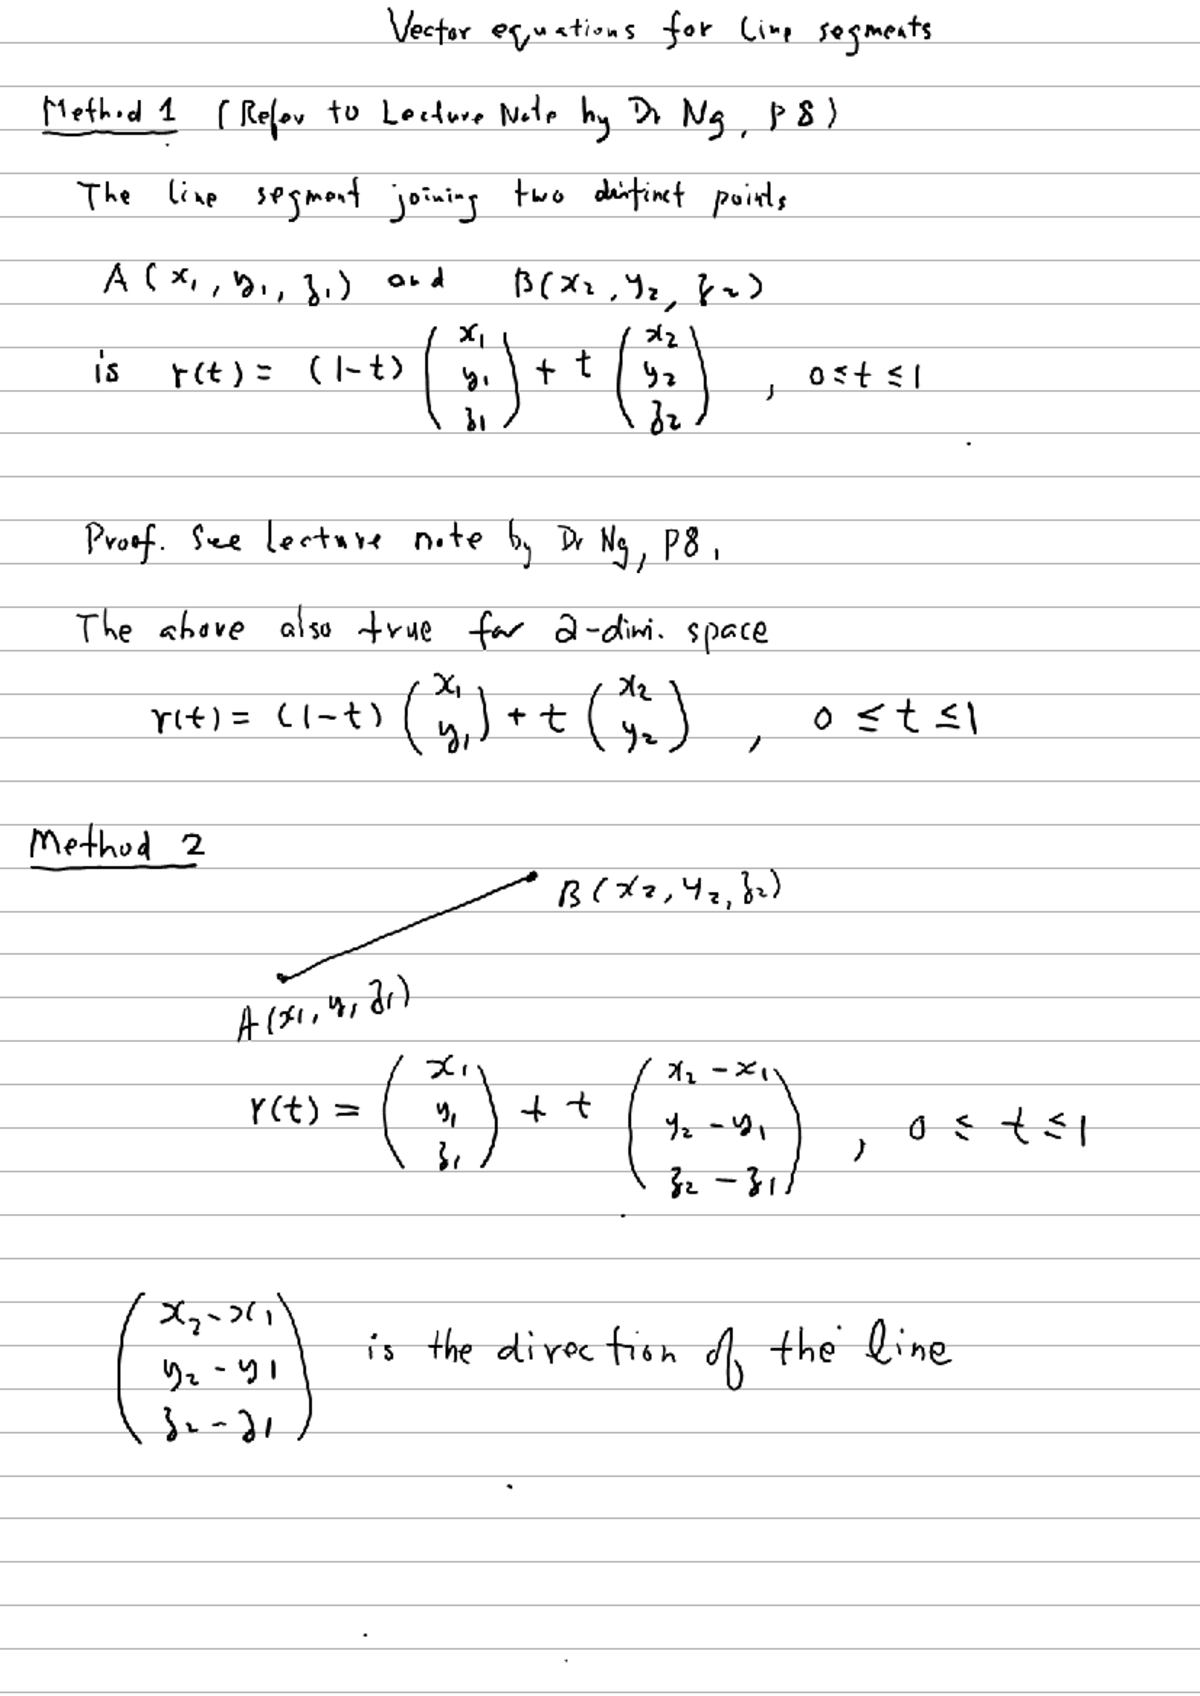 Vector equations for line segments
Method 1 (Refer to Lecture Note by Dr Ng, P 8)
The line segment joining two distinct points
A(x₁, y₁, z₁) and B(x₂, y₂, z₂)
is r(t) = (1-t) (x₁ y₁ z₁) + t (x₂ y₂ z₂), 0 ≤ t ≤ 1
Proof. See lecture note by Dr Ng, P8.
The above also true for 2-dim. space
r(t) = (1-t) (x₁ y₁) + t (x₂ y₂), 0 ≤ t ≤ 1
Method 2
B(x₂, y₂, z₂)
A(x₁, y₁, z₁)
r(t) = (x₁ y₁ z₁) + t (x₂ - x₁ y₂ - y₁ z₂ - z₁), 0 ≤ t ≤ 1
(x₂ - x₁ y₂ - y₁ z₂ - z₁) is the direction of the line